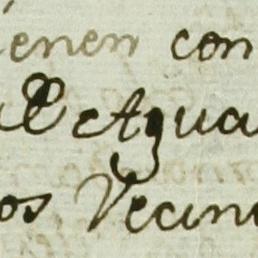 ienen con
el Agua
os Vecin